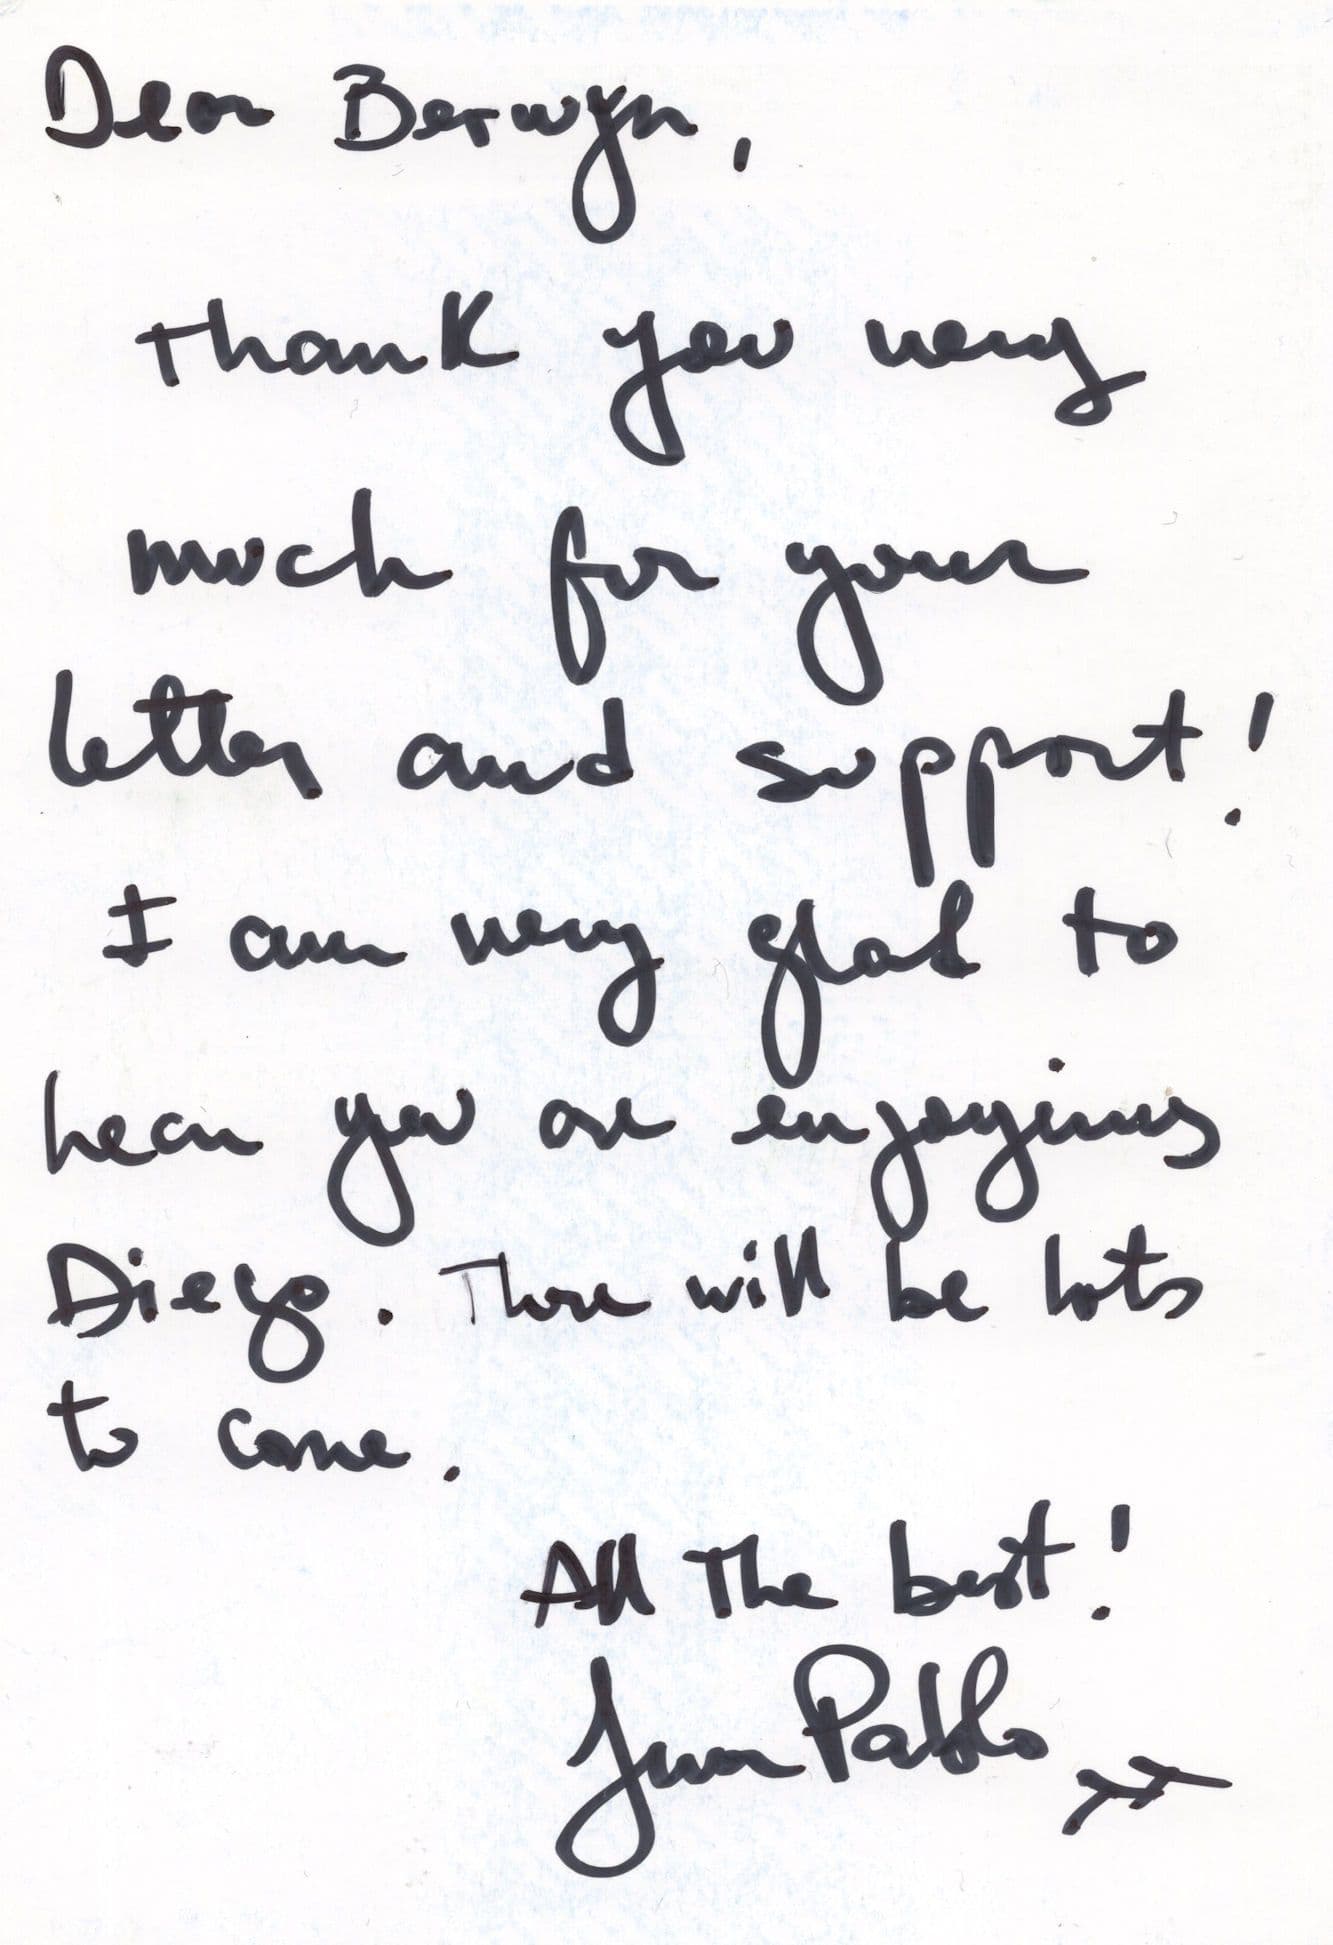 Dear Berwyn,
Thank you very
much for your
letter and support!
I am very glad to
hear you are enjoying
Diego. There will be lots
to come.
All the best!
Juan Pablo